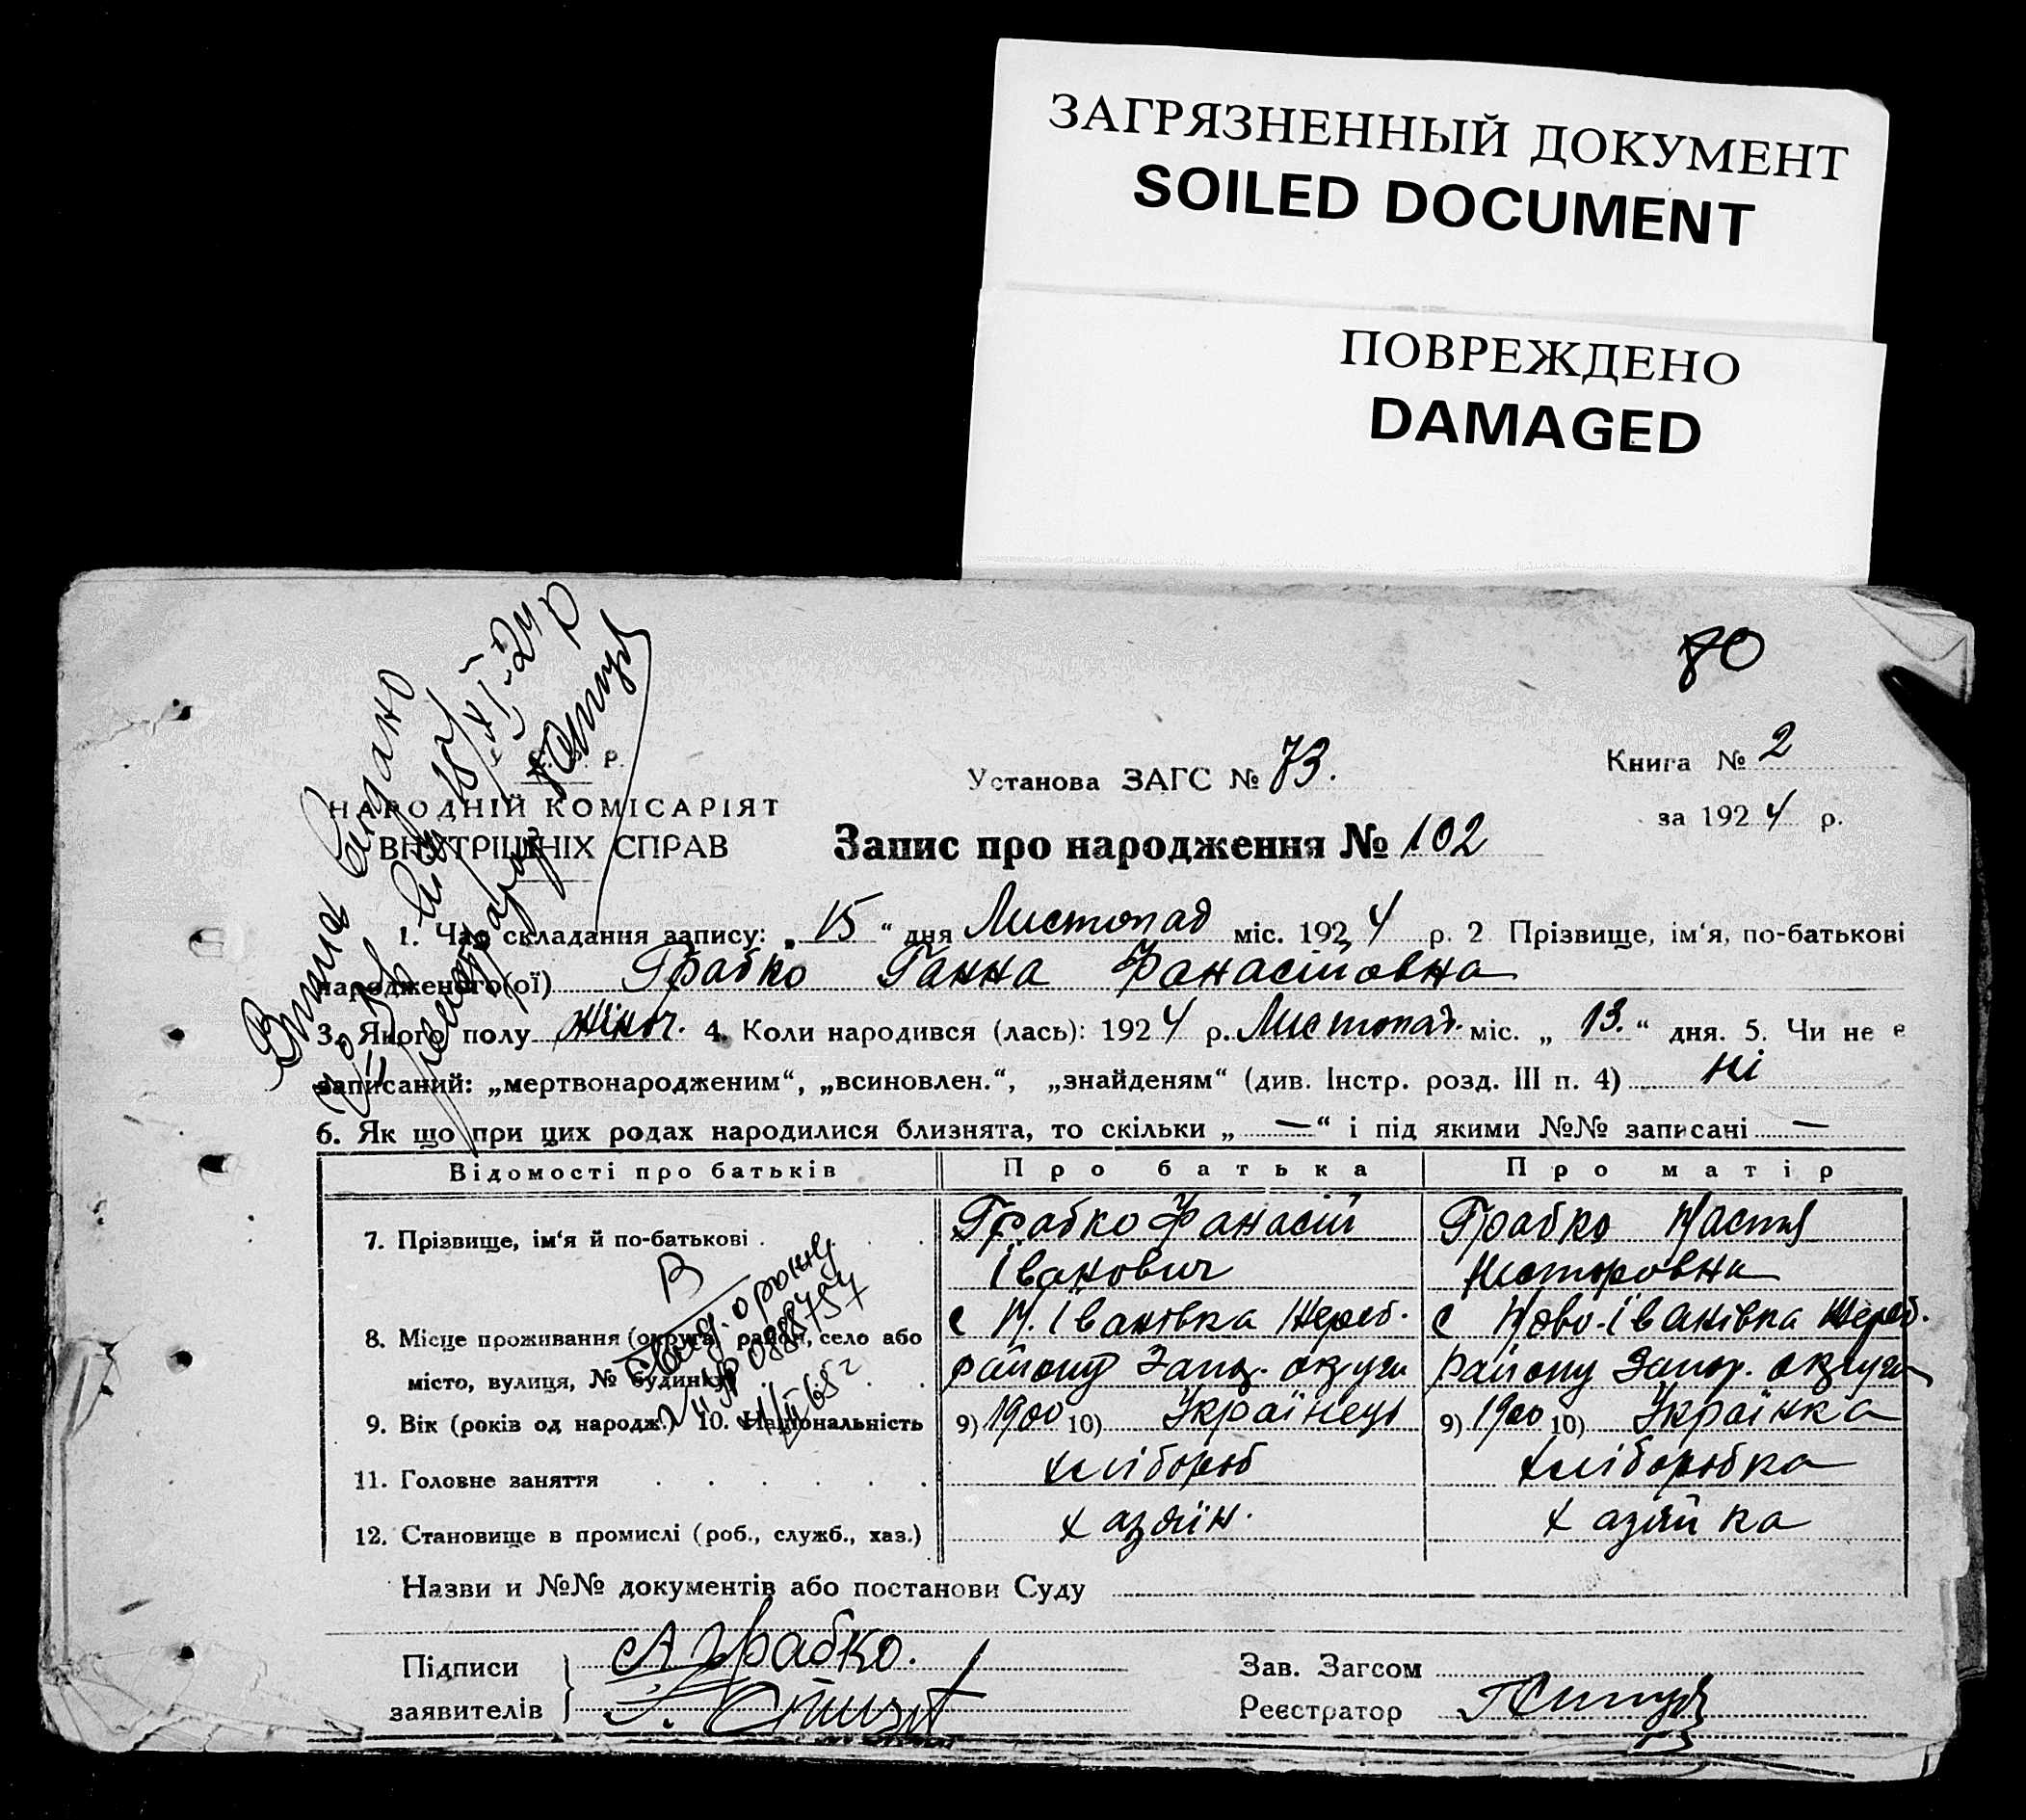 ЗАГРЯЗНЕННЫЙ ДОКУМЕНТ
SOILED DOCUMENT
ПОВРЕЖДЕНО
DAMAGED
80
Книга № 2
за 1924 р.
Установа ЗАГС № 73.
НАРОДНІЙ КОМІСАРІЯТ
ВНУТРІШНІХ СПРАВ
Запис про народження № 102
видано
1. Час складання запису: „ 15 “ дня Листопад міс. 1924 р. 2 Прізвище, ім‘я, по-батькові
народженого(ої) Грабко Ганна Фанасіївна
3. Якого полу жіноч. 4. Коли народився (лась): 1924 р. Листопад. міс. „ 13. “ дня. 5. Чи не є
записаний: „мертвонародженим“, „всиновлен.“, „знайденям“ (див. Інстр. розд. III п. 4) ні
6. Як що при цих родах народилися близнята, то скільки „ — “ і під якими №№ записані —
Відомості про батьків Про батька Про матір
7. Прізвище, ім‘я й по-батькові Грабко Фанасій Грабко Настя
Іванович Несторовна
8. Місце проживання (округа, район, село або с Н. Іванівка Жереб. с Ново-Іванівка Жереб.
місто, вулиця, № будинку) району Запор. округи району Запор. округи
9. Вік (років од народж.) 10. Національність 9) 1900 10) Українець 9) 1900 10) Українка
11. Головне заняття хлібороб хліборобка
12. Становище в промислі (роб., служб., хаз.) хазяїн. хазяйка
Назви и №№ документів або постанови Суду
Підписи А Грабко. Зав. Загсом
заявителів Реєстратор